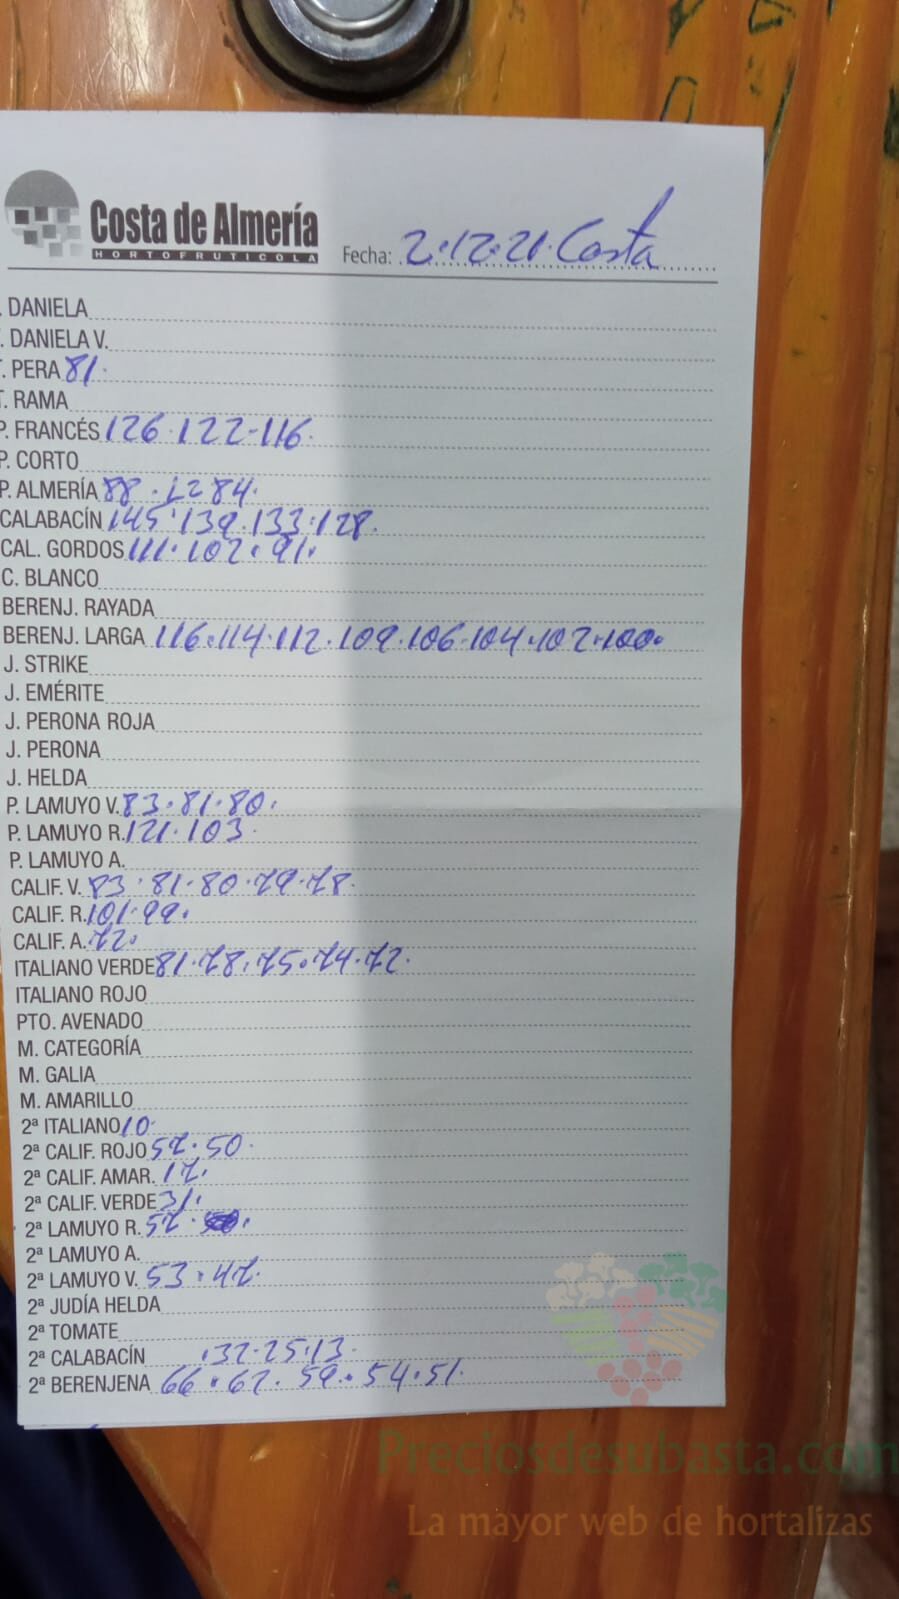 Costa de Almería
HORTOFRUTICOLA
Fecha: 2.12.21. Costa
. DANIELA
. DANIELA V.
T. PERA 81.
T. RAMA
P. FRANCÉS 126.122-116.
P. CORTO
P. ALMERÍA 88. 84.
CALABACÍN 145.139.133.128.
CAL. GORDOS 111.102.91.
C. BLANCO
BERENJ. RAYADA
BERENJ. LARGA 116.114.112.109.106.104.102.100.
J. STRIKE
J. EMÉRITE
J. PERONA ROJA
J. PERONA
J. HELDA
P. LAMUYO V. 83.81.80.
P. LAMUYO R. 121.103.
P. LAMUYO A.
CALIF. V. 83.81.80.79.78.
CALIF. R. 101.99.
CALIF. A. 72.
ITALIANO VERDE 81.78.75.74.72.
ITALIANO ROJO
PTO. AVENADO
M. CATEGORÍA
M. GALIA
M. AMARILLO
2ª ITALIANO 10.
2ª CALIF. ROJO 57.50.
2ª CALIF. AMAR. 17.
2ª CALIF. VERDE 31.
2ª LAMUYO R. 57.
2ª LAMUYO A.
2ª LAMUYO V. 53.47.
2ª JUDÍA HELDA
2ª TOMATE
2ª CALABACÍN .32.25.13.
2ª BERENJENA 66.62.59.54.51.
Preciosdesubasta.com
La mayor web de hortalizas